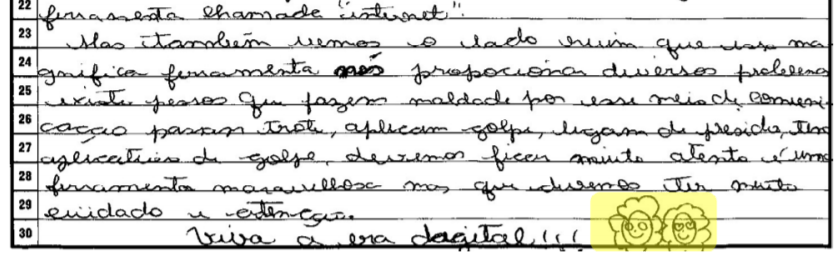 22 ferramenta chamada "internet".
23 Mas também vemos o lado ruim que essa ma
24 gnifica ferramenta nos proporciona diversos problema
25 existe pessoas que fazem maldade por esse meio de comuni
26 cação passam trote, aplicam golpe, ligam de presidio, tem
27 aplicativos de golpe, devemos ficar muito atento é uma
28 ferramenta maravilhosa mas que devemos ter muito
29 cuidado e atenção.
30 Viva a era dagital!!!